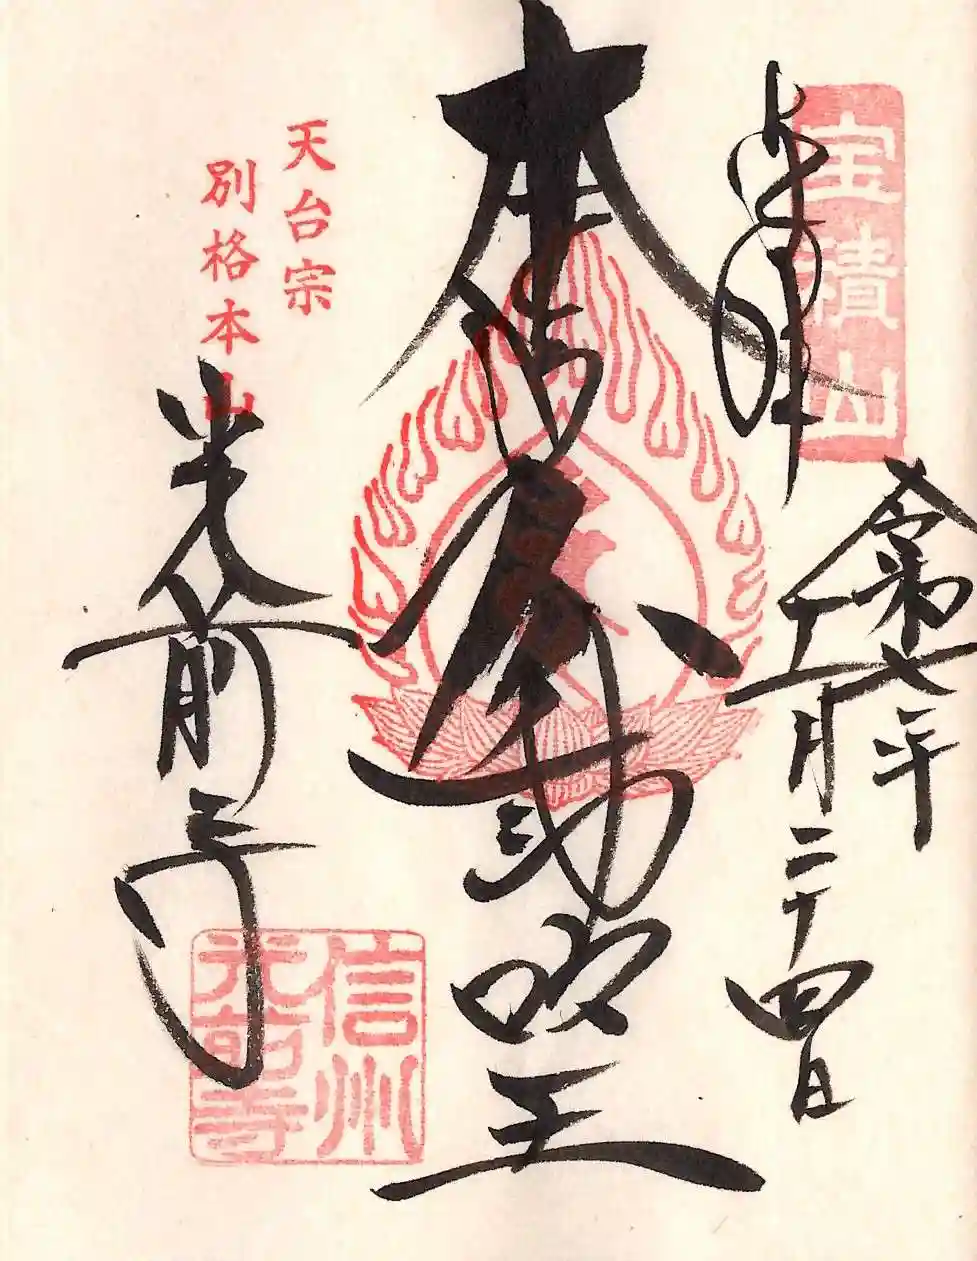 宝積山
奉拝
令和七年
五月二十四日
本尊不動明王
天台宗
別格本山
光前寺
信州
光前寺